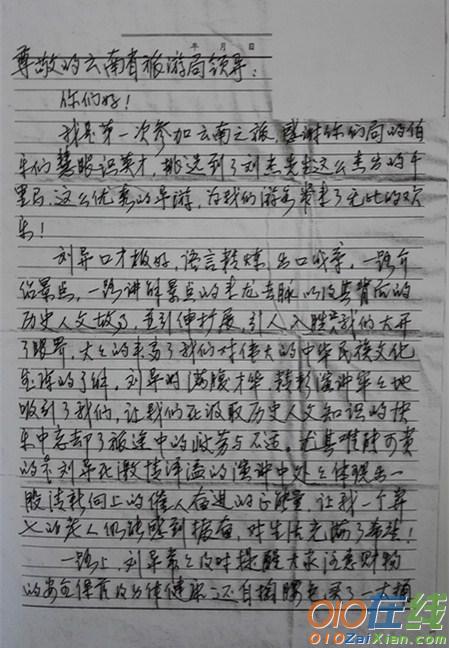 年 月 日
尊敬的云南省旅游局领导：
你们好！
我是第一次参加云南之旅，感谢你们局的伯
乐们慧眼识英才，挑选到了刘杰先生这么杰出的千
里马，这么优秀的导游，为我们游客带来了无比的欢
乐！
刘导口才极好，语言精炼，出口成章，一路介
绍景点，一路讲解景点的来龙去脉以及其背后的
历史人文故事，并引伸扩展，引人入胜，我们大开
了眼界，大大的提高了我们对伟大的中华民族文化
的了解。刘导的满腹才华，精彩演讲牢牢地
吸引了我们，让我们在汲取历史人文知识的快
乐中忘却了旅途中的疲劳与不适，尤其难能可贵
的是刘导在激情洋溢的演讲中处处体现出一
股清新向上的催人奋进的正能量，让我一个年
七的老人仍能感到振奋，对生活充满了希望！
一路上，刘导常常及时提醒大家注意财物
的安全保管及身体健康，还自掏腰包买了一大
010在线
010ZaiXian.com